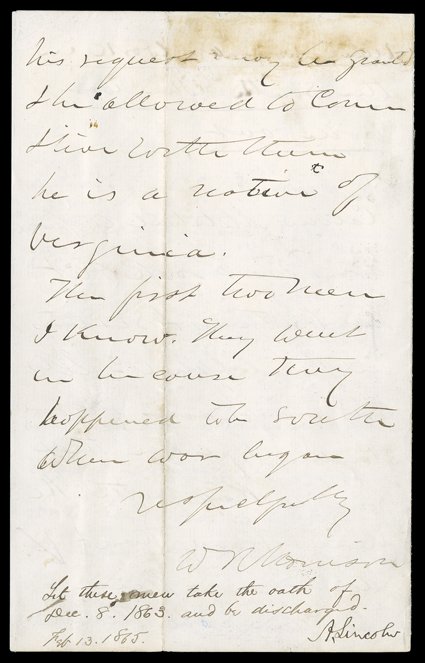 his request may be granted
& he allowed to Come
& live with them
he is a native of
Virginia.
The first two men
I Know. They went
in because they
happened to be south
when war began
respectfully
W R Morrison
Let these men take the oath of
Dec. 8. 1863 and be discharged.
Feb. 13. 1865.
A. Lincoln